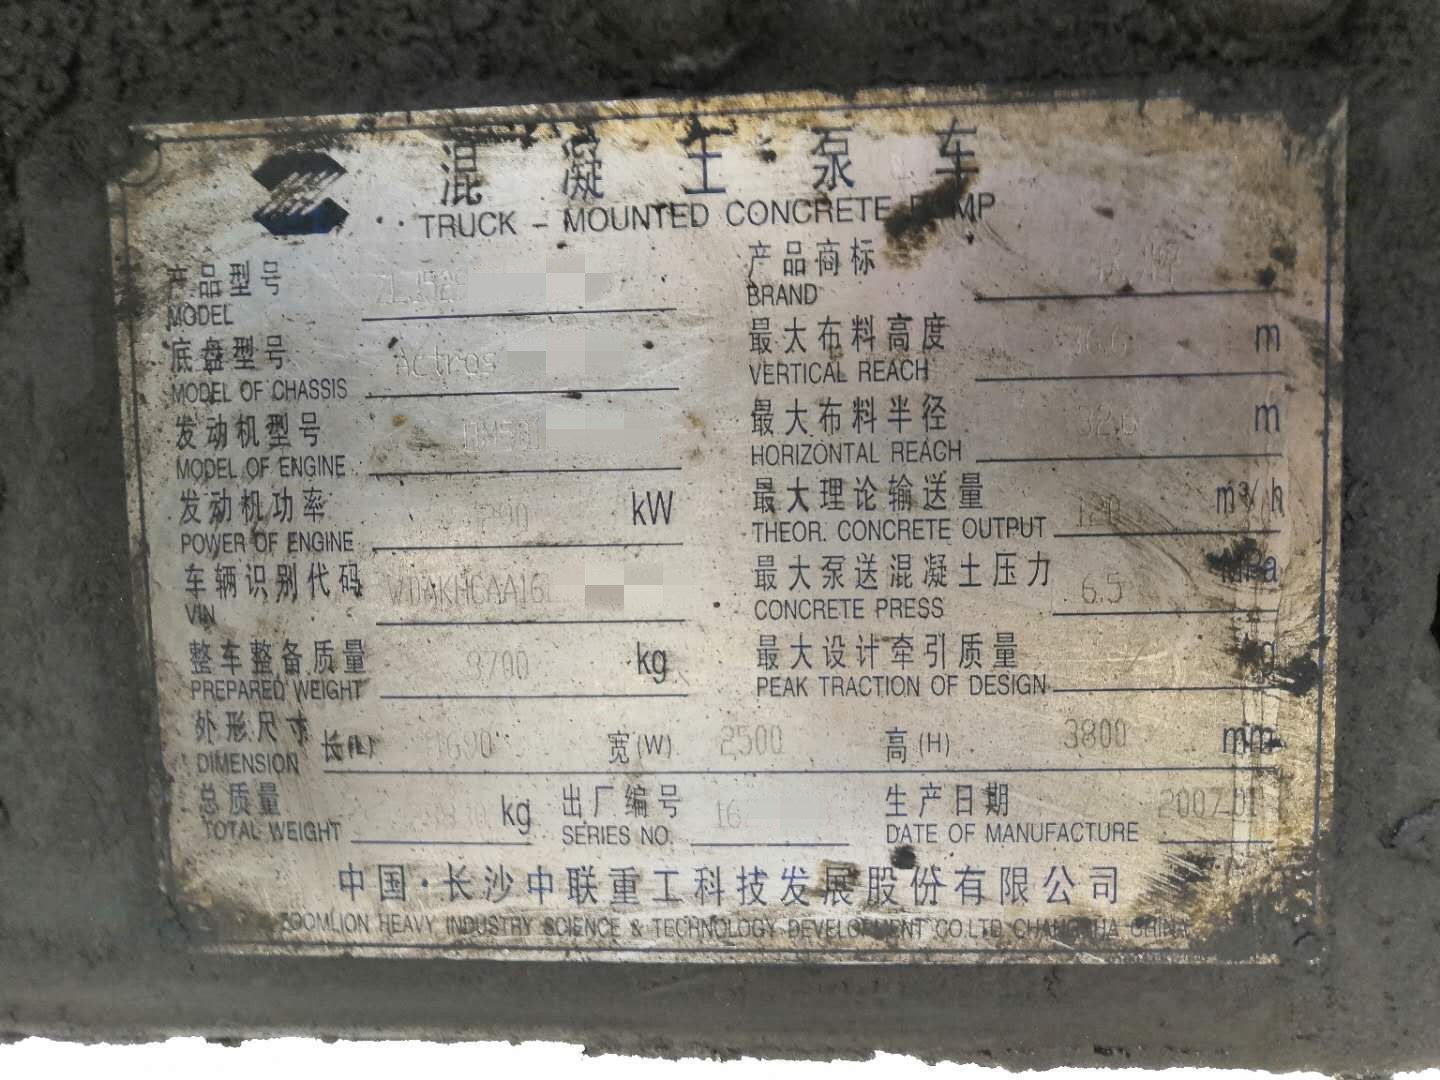 混凝土泵车
TRUCK - MOUNTED CONCRETE PUMP
产品型号 ZLJ529
MODEL
产品商标
BRAND
底盘型号 Actros
MODEL OF CHASSIS
最大布料高度 m
VERTICAL REACH
发动机型号
MODEL OF ENGINE
最大布料半径 32.6 m
HORIZONTAL REACH
发动机功率 290 kW
POWER OF ENGINE
最大理论输送量 120 m³/h
THEOR. CONCRETE OUTPUT
车辆识别代码
VIN
最大泵送混凝土压力 6.5 MPa
CONCRETE PRESS
整车整备质量 kg
PREPARED WEIGHT
最大设计牵引质量 / kg
PEAK TRACTION OF DESIGN
外形尺寸 长(L) 宽(W) 2500 高(H) 3800 mm
DIMENSION
总质量 kg 出厂编号 16 生产日期 2007.01
TOTAL WEIGHT SERIES NO. DATE OF MANUFACTURE
中国·长沙中联重工科技发展股份有限公司
ZOOMLION HEAVY INDUSTRY SCIENCE & TECHNOLOGY DEVELOPMENT CO.LTD CHANGSHA CHINA